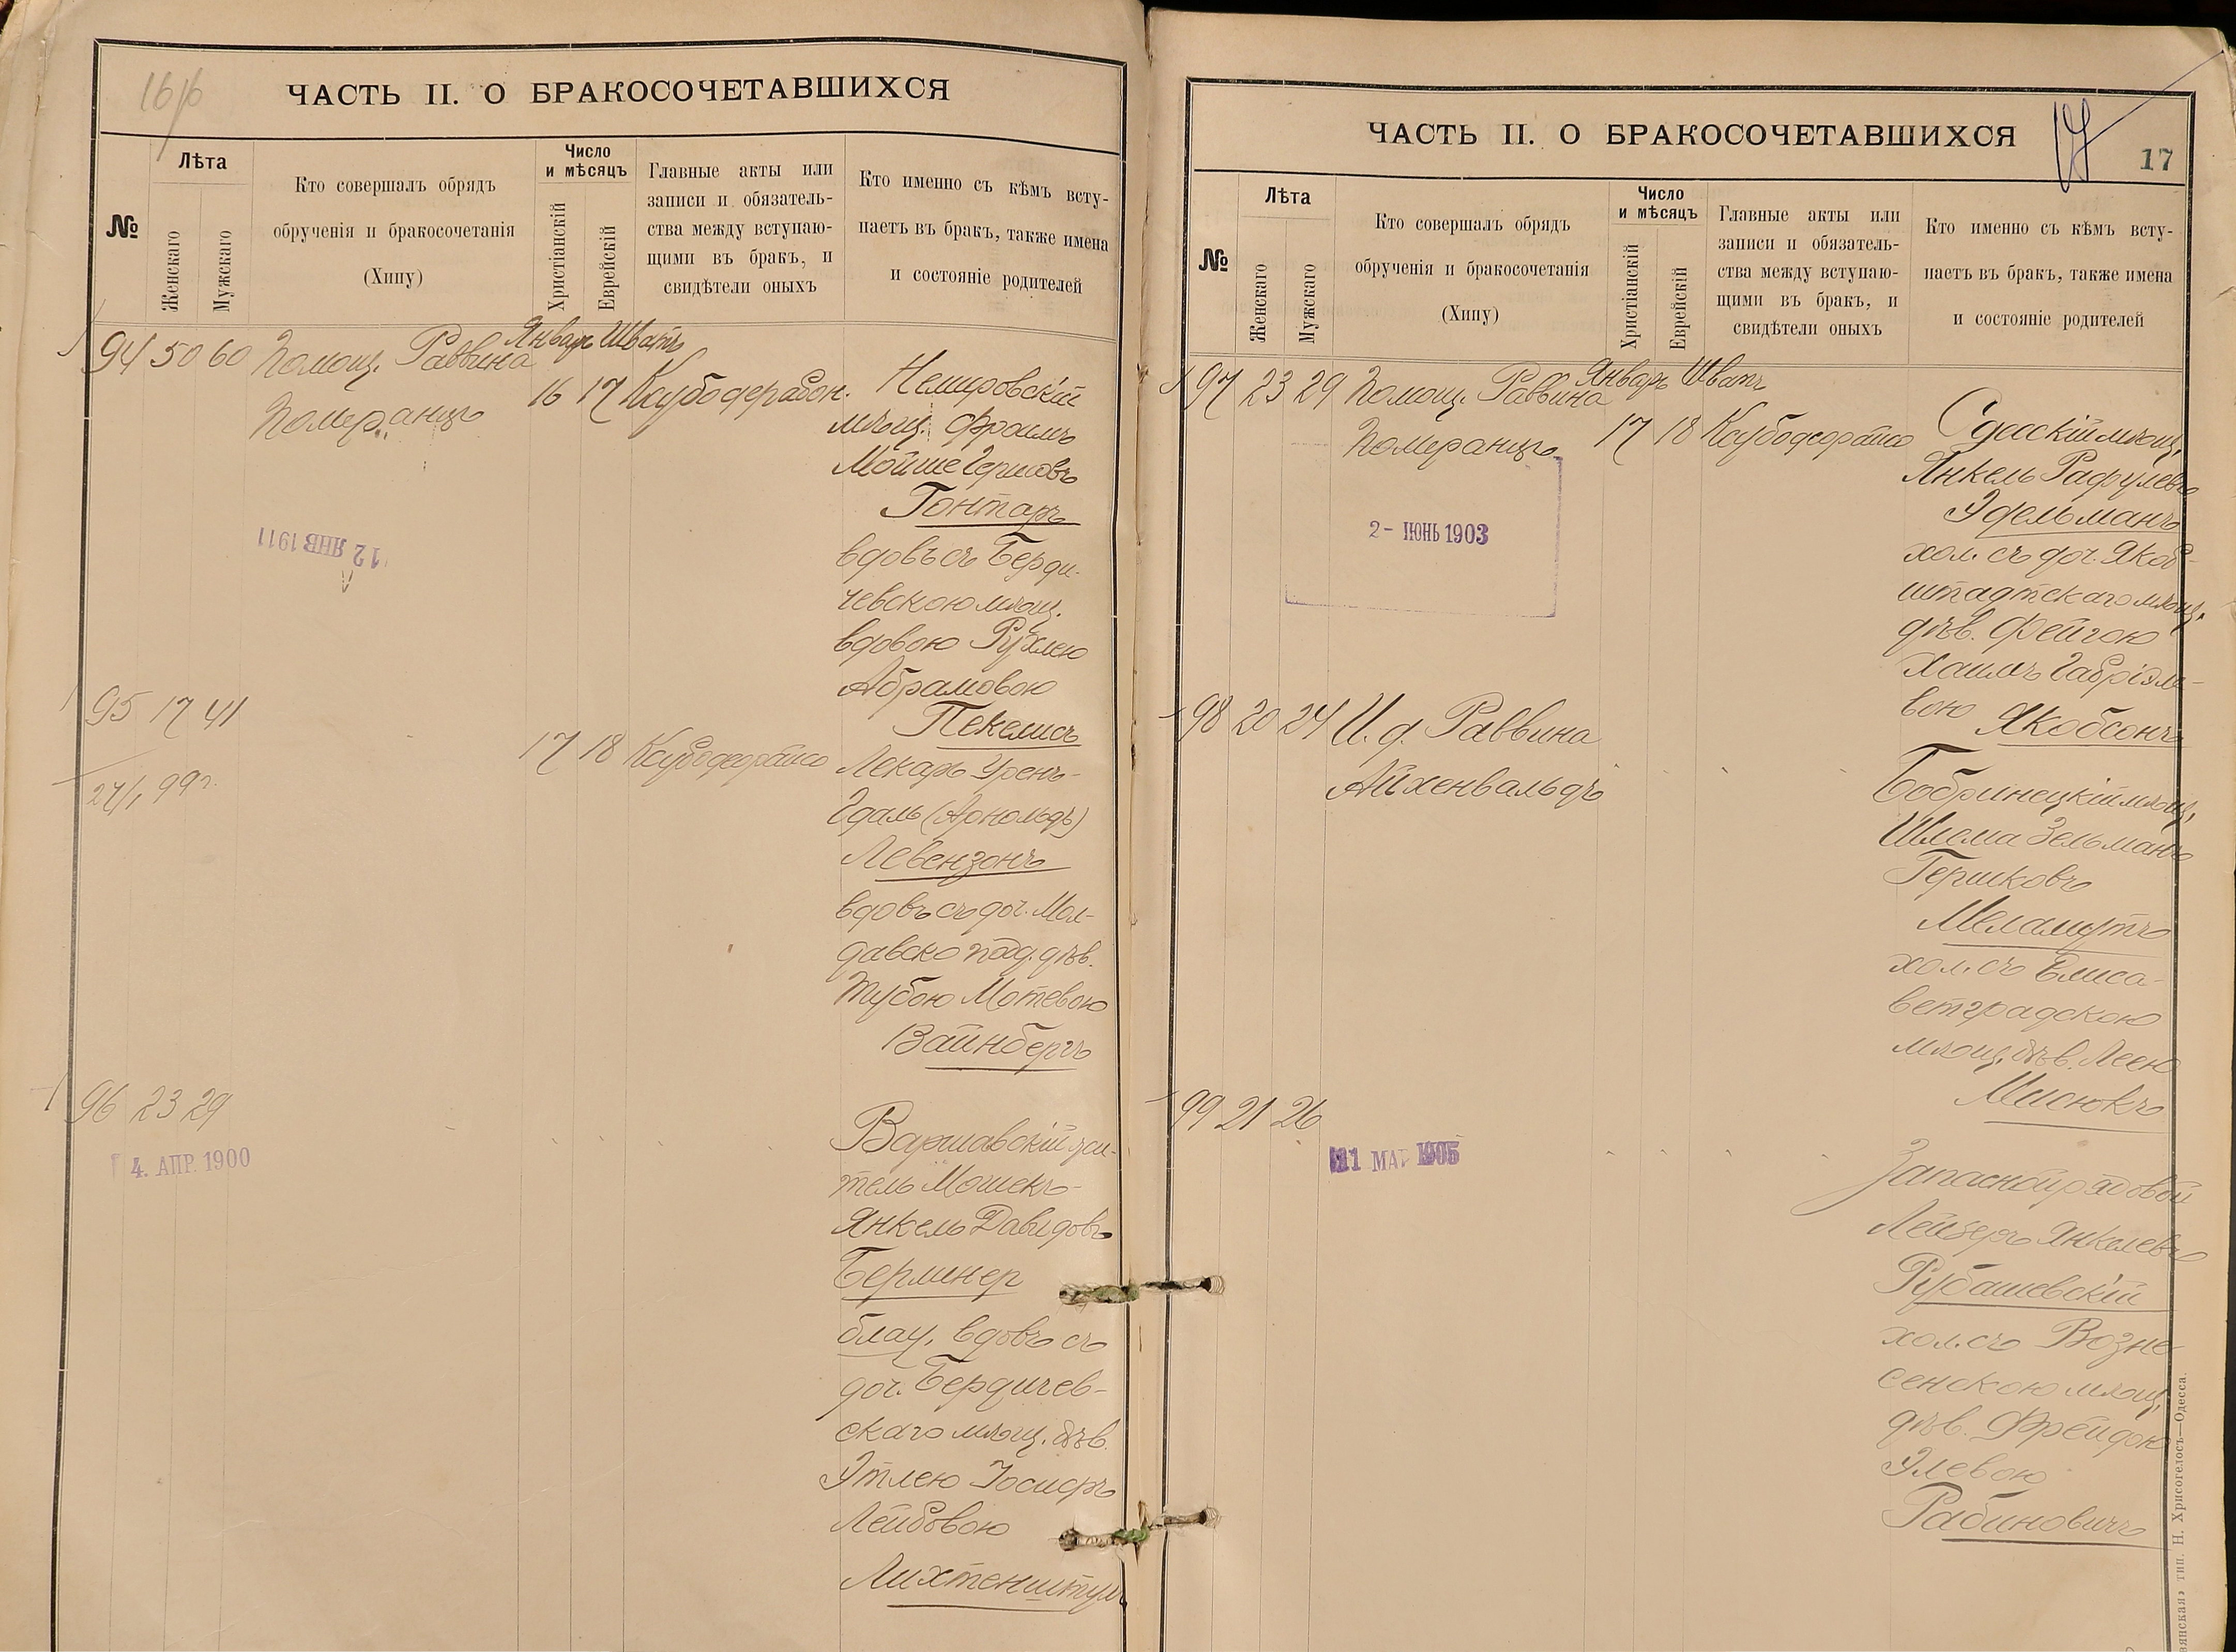 16
ЧАСТЬ II. О БРАКОСОЧЕТАВШИХСЯ
№
Лѣта
Женскаго
Мужскаго
Кто совершалъ обрядъ
обрученія и бракосочетанія
(Хипу)
Число
и мѣсяцъ
Христіанскій
Еврейскій
Главные акты или
записи и обязатель-
ства между вступаю-
щими въ бракъ, и
свидѣтели оныхъ
Кто именно съ кѣмъ всту-
паетъ въ бракъ, также имена
и состояніе родителей
94 50 60 Помощ. Раввина
Померанцъ
Январь Шватъ
16 17
Немировскій
мѣщ. Фроимъ
Мойше Гершовъ
Гонтарь
вдовъ съ Берди-
чевскою мѣщ.
вдовою Рухлею
Абрамовою
Пекелисъ
12 ЯНВ 1911
95 17 41
27/1 99 г.
17 18
Лекарь Уренъ-
Гдаль (Арнольдъ)
Левензонъ
вдовъ съ доч. Мол-
давско под. дѣв.
Тубою Мотевою
Вайнбергъ
96 23 29
4. АПР. 1900
Варшавскій жи-
тель Мошекъ-
Янкель Давидовъ
Берлинер
блау, вдовъ съ
доч. Бердичев-
скаго мѣщ. дѣв.
Этлею Іосифъ
Лейбовою
Лихтенштул
ЧАСТЬ II. О БРАКОСОЧЕТАВШИХСЯ
17
17
№
Лѣта
Женскаго
Мужскаго
Кто совершалъ обрядъ
обрученія и бракосочетанія
(Хипу)
Число
и мѣсяцъ
Христіанскій
Еврейскій
Главные акты или
записи и обязатель-
ства между вступаю-
щими въ бракъ, и
свидѣтели оныхъ
Кто именно съ кѣмъ всту-
паетъ въ бракъ, также имена
и состояніе родителей
97 23 29 Помощ. Раввина
Померанцъ
Январь Шватъ
17 18
2 - ИЮНЬ 1903
Одесскій мѣщ.
Янкель Рафулевъ
Эдельманъ
хол. съ доч. Якоб-
штадтскаго мѣщ.
дѣв. Фейгою
Хаимъ Габріэле-
вою Якобсонъ
98 20 24 И. д. Раввина
Айхенвальдъ
Бобринецкій мѣщ.
Шлема Зельманъ
Гершковъ
Меламутъ
хол. съ Елиса-
ветградскою
мѣщ. дѣв. Леею
Мисюкъ
99 21 26
Запасной рядовой
Лейзеръ Янкелевъ
Рубашевскій
хол. съ Возне
сенскою мѣщ.
дѣв. Фрейдою
Элевою
Рабиновичъ
тип. Н. Хрисогелосъ—Одесса.